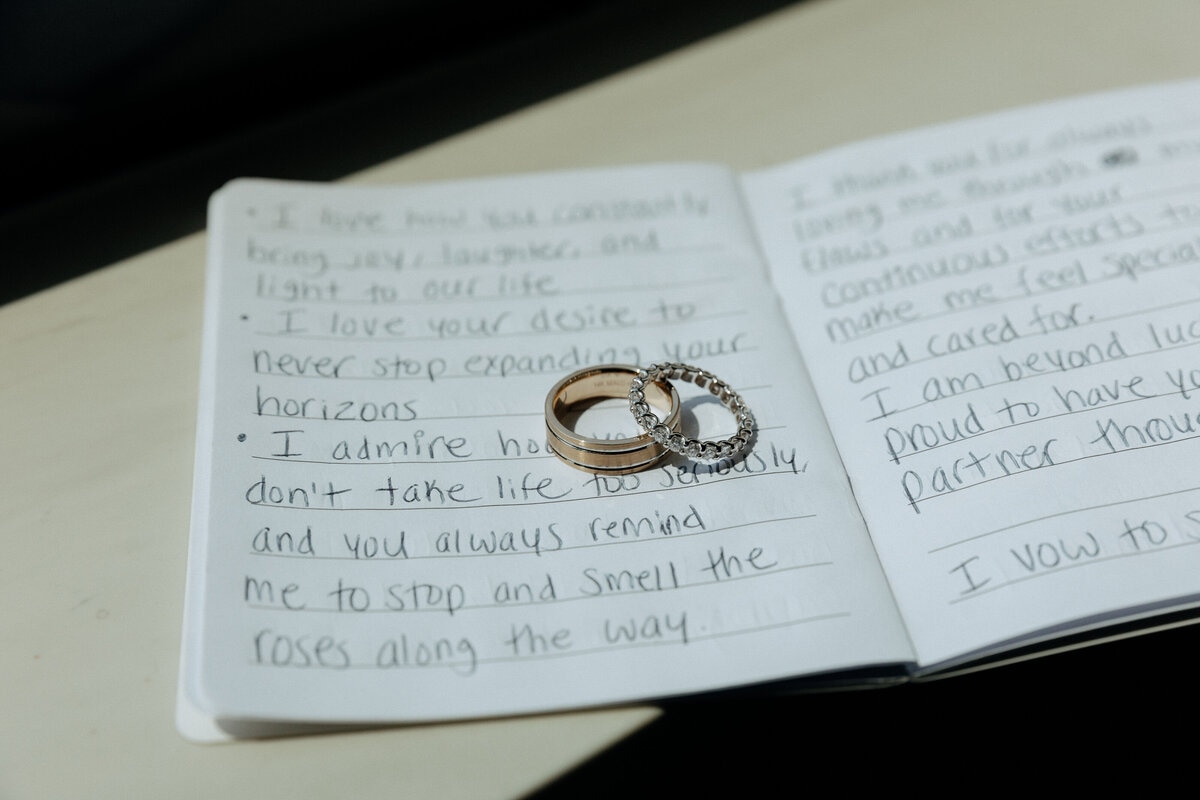 • I love how you constantly
bring joy, laughter, and
light to our life
• I love your desire to
never stop expanding your
horizons
• I admire how
don't take life too seriously,
and you always remind
me to stop and smell the
roses along the way.
I thank you for always
loving me through
flaws and for your
continuous efforts to
make me feel special
and cared for.
I am beyond luc
proud to have yo
partner throu
I vow to s